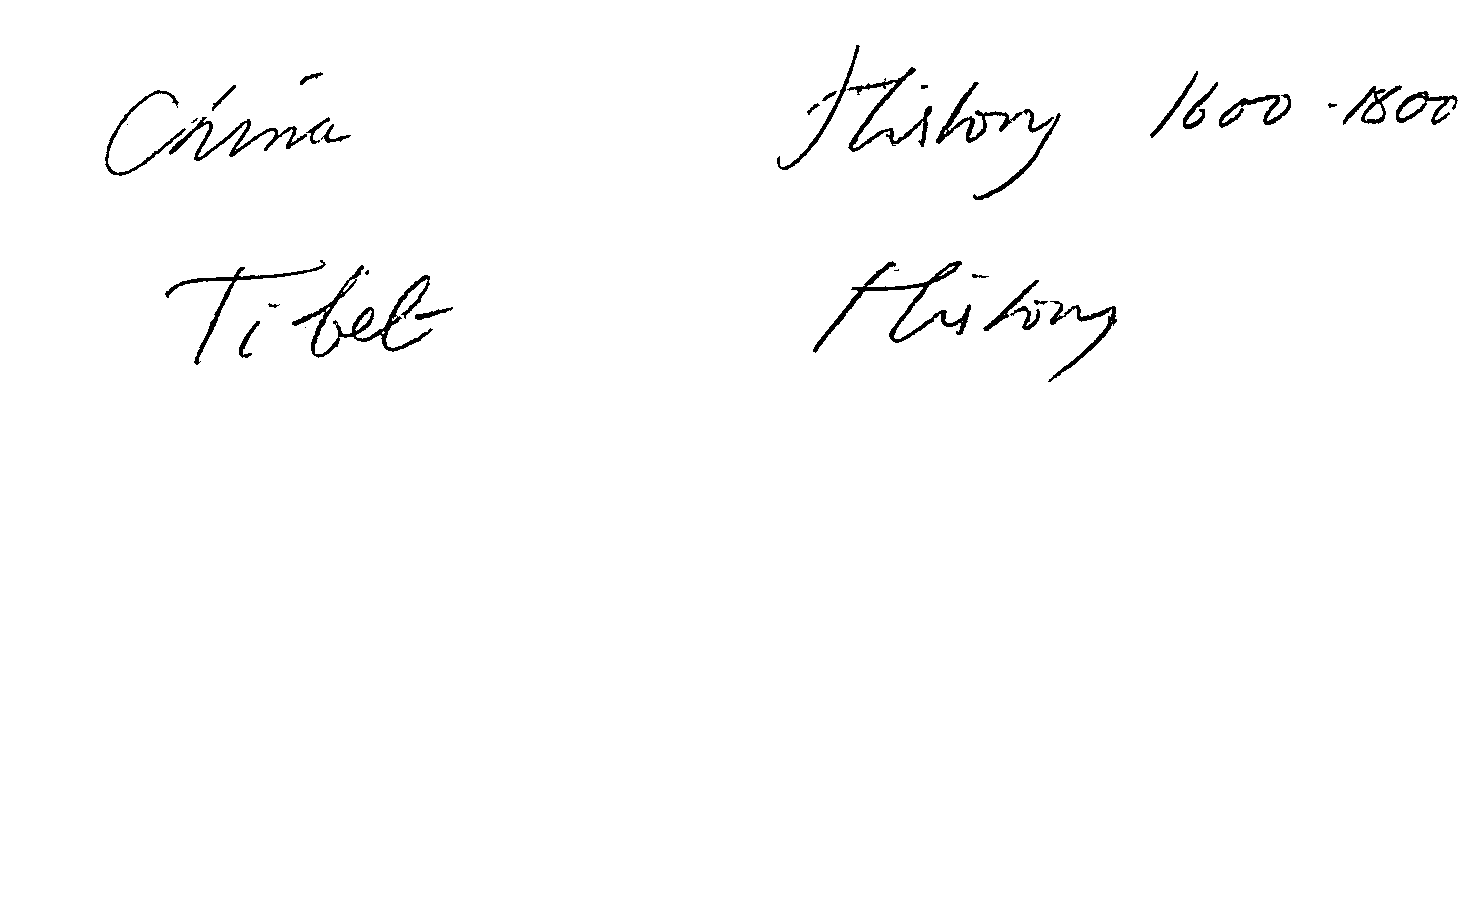 China History 1600-1800
Tibet History